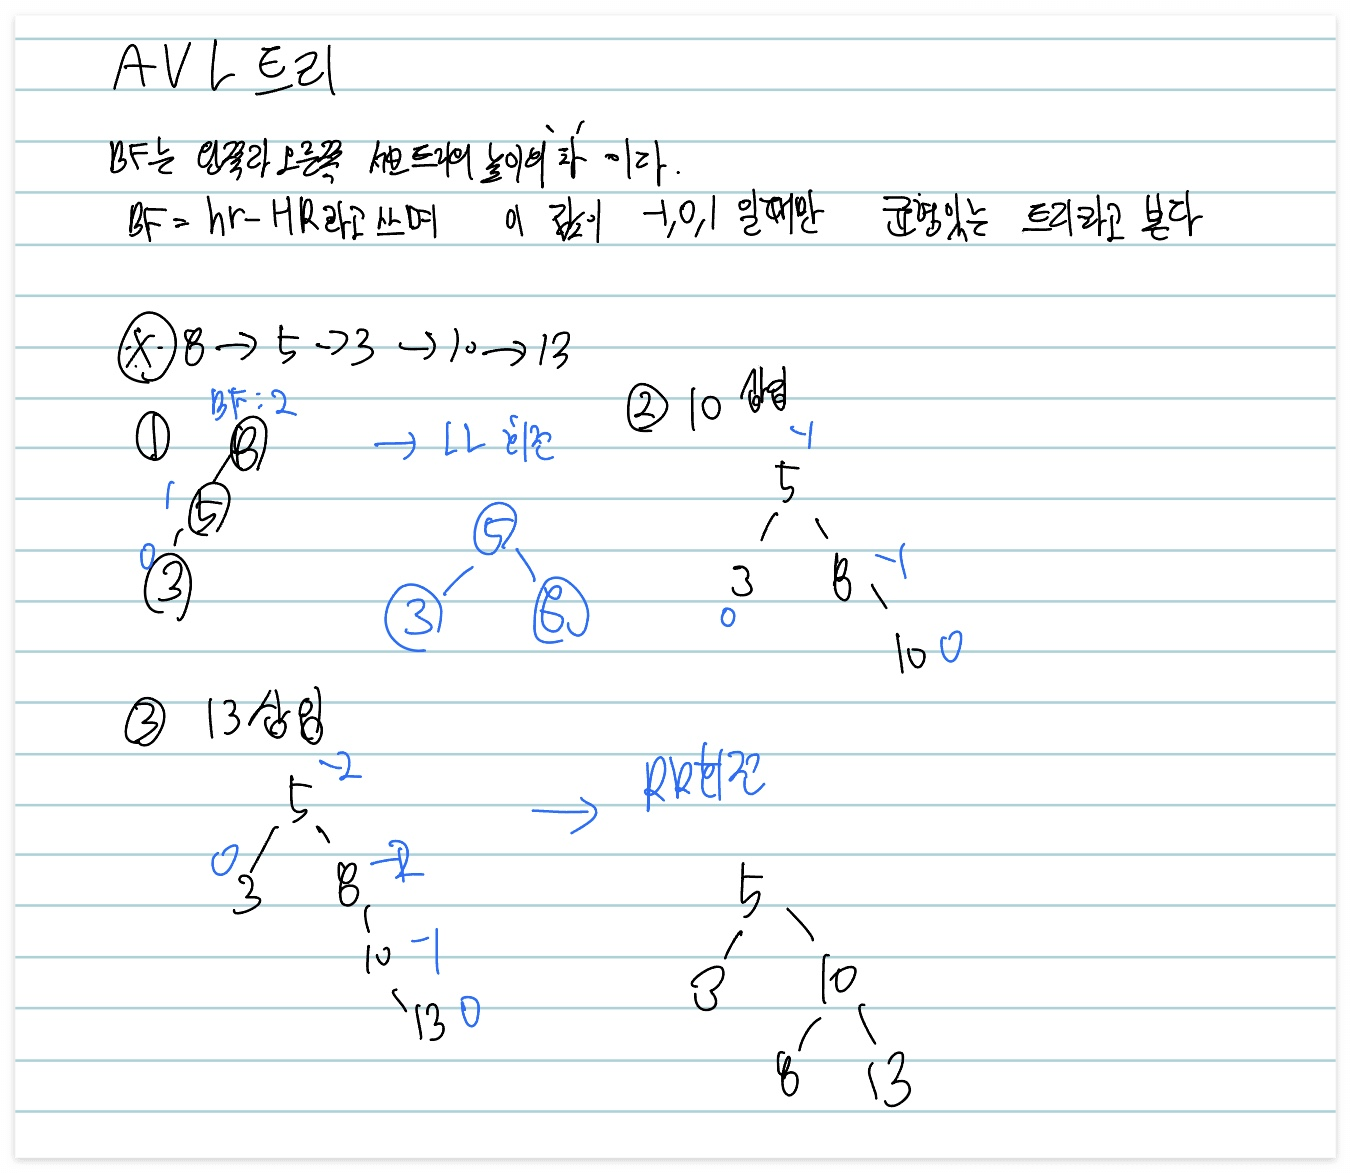 AVL 트리
BF는 왼쪽과 오른쪽 서브트리의 높이의 차 이다.
BF = hr - HR라고 쓰며 이 값이 -1,0,1 일때만 균형있는 트리라고 본다
8 → 5 → 3 → 10 → 13
① BF: 2
8
→ LL 회전
1
5
0
3
5
3 8
② 10 삽입
-1
5
3 8 -1
0
10 0
③ 13 삽입
-2
5
0
3 8 -2
10 -1
13 0
→ RR회전
5
3 10
8 13